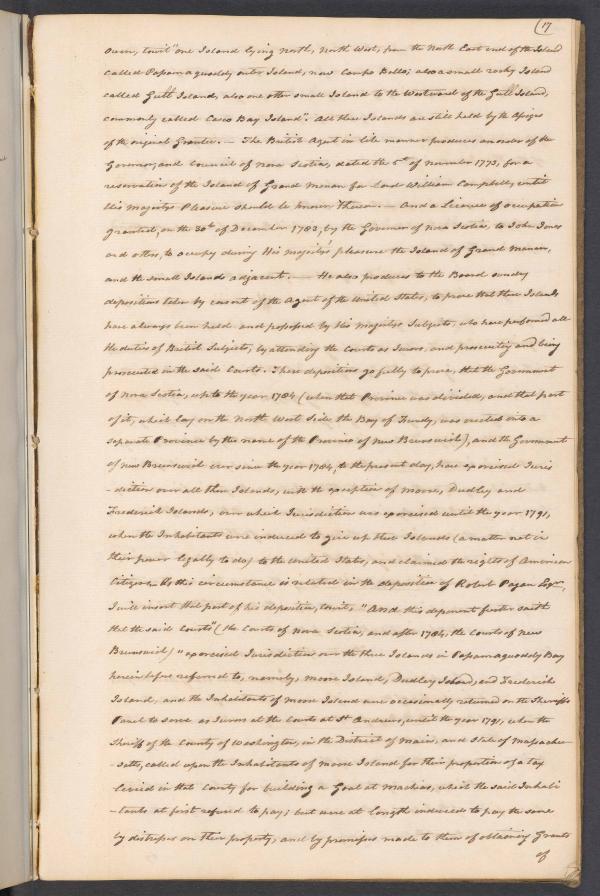 (17
Owen, towit "one Island lying North, North West, from the North East end of the Island
called Passamaquoddy outer Island, now Campo Bello; also a small rocky Island
called Gull Island, also one other small Island to the Westward of the Gull Island,
commonly called Casco Bay Island". All these Islands are still held by the Assigns
of the original Grantee. — The British Agent in like manner produces an order of the
Governor, and Council of Nova Scotia, dated the 5th of November 1773, for a
reservation of the Island of Grand Manan for Lord William Campbell, until
His Majestys Pleasure should be known thereon. — And a Licence of occupation
granted, on the 30th of December 1783, by the Governor of Nova Scotia, to John Jones
and others, to occupy during His Majesty's pleasure the Island of Grand Manan,
and the small Islands adjacent. — He also produces to the Board sundry
depositions taken by consent of the Agent of the United States, to prove that these Islands
have always been held and possessed by His Majestys Subjects, who have performed all
the duties of British Subjects, by attending the Courts as Jurors, and prosecuting and being
prosecuted in the said Courts. These depositions go fully to prove, that the Government
of Nova Scotia, up to the year 1784 (when that Province was divided, and that part
of it, which lay on the North West side the Bay of Fundy, was erected into a
separate Province by the name of the Province of New Brunswick), and the Government
of New Brunswick ever since the year 1784, to the present day, have exercised Juris
-diction over all these Islands, with the exception of Moose, Dudley and
Frederick Islands, over which Jurisdiction was exercised until the year 1791,
when the Inhabitants were induced to give up these Islands (a matter not in
their power legally to do) to the United States, and claimed the rights of American
Citizens. As this circumstance is related in the deposition of Robert Pagan Esqre,
I will insert that part of his deposition, towit, "And this deponent further saith
that the said Courts" (the Courts of Nova Scotia, and after 1784, the Courts of New
Brunswick) "exercised Jurisdiction over the three Islands in Passamaquoddy Bay
herein before referred to, namely, Moose Island, Dudley Island, and Frederick
Island, and the Inhabitants of Moose Island were occasionally returned on the Sheriff's
Panel to serve as Jurors at the Courts at St Andrews, until the year 1791, when the
Sheriff of the County of Washington, in the District of Main, and State of Massachu-
-setts, called upon the Inhabitants of Moose Island for their proportion of a tax
levied in that County for building a Goal at Machias, which the said Inhabi
-tants at first refused to pay; but were at length induced to pay the same
by distress on their property, and by promises made to them of obtaining Grants
of